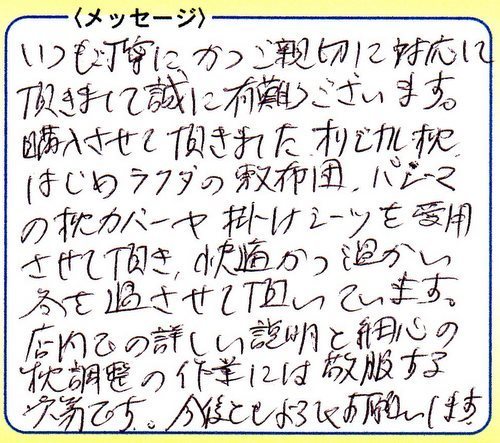 〈メッセージ〉
いつも丁寧に、かつご親切に対応して
頂きまして誠に有難うございます。
購入させて頂きました、オリジナル枕、
はじめラクダの敷布団、パジーマ
の枕カバーや掛けシーツを愛用
させて頂き、快適かつ温かい
冬を過させて頂いています。
店内での詳しい説明と細心の
枕調整の作業には敬服する
次第です。今後ともよろしくお願いします